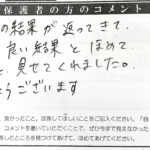 保護者の方のコメント
の結果が返ってきて、
良い結果とほめて
見せてくれました。
とうございます
良かったこと、改善してほしいことをご記入ください。「自
コメントを書いていただくことで、ぜひ今まで見えなかった
長したところを見つけてあげて、ほめてあげてください。